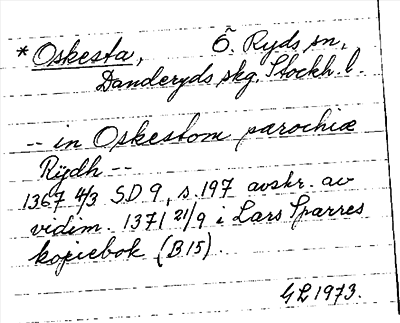 * Oskesta, Ö. Ryds sn,
Danderyds skg. Stockh. l.
-- in Oskestom parochiæ
Rÿdh --
1367 4/3 SD 9, s. 197 avskr. av
vidim. 1371 21/9 i Lars Sparres
kopiebok (B 15).
GL 1973.